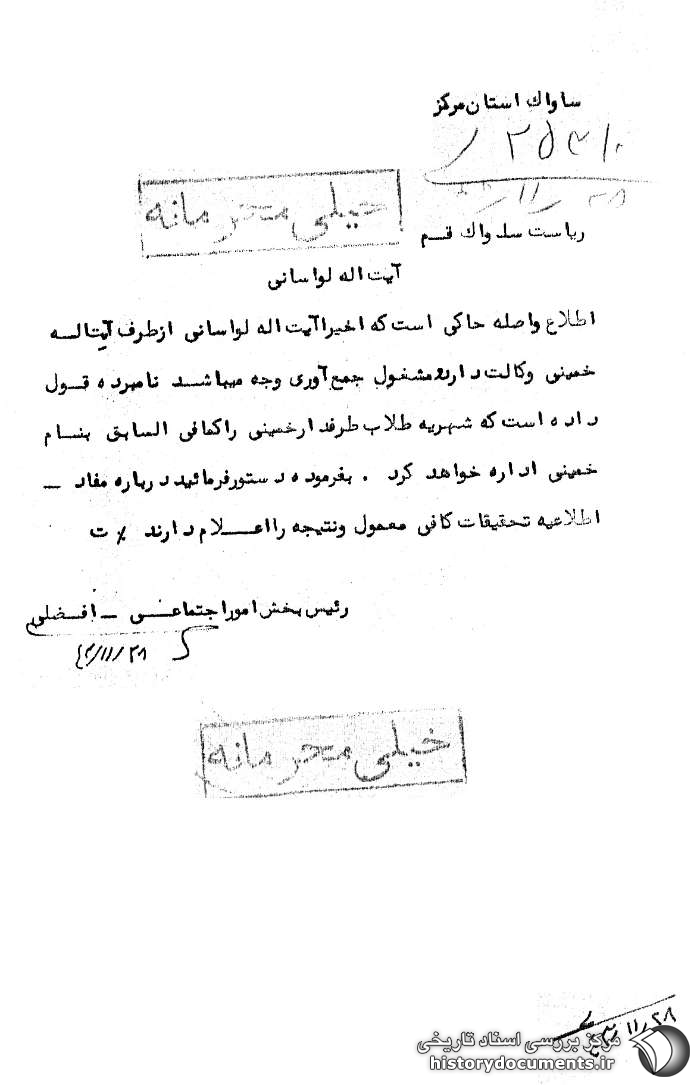 ساواك استان مركز
۲۵۳۱۰
۲۸ر۱۱ر
خیلی محرمانه
ریاست ساواك قم
آیت اله لواسانی
اطلاع واصله حاکی است که اخیرا آیت اله لواسانی ازطرف آیتاله
خمینی وکالت دارد مشغول جمع آوری وجه میباشد نامبرده قول
داده است که شهریه طلاب طرفدارخمینی راکمافی السابق بنام
خمینی اداره خواهد کرد . بفرموده دستورفرمائید درباره مفاد ـ
اطلاعیه تحقیقات کافی معمول ونتیجه رااعلام دارند ٪ ت
رئیس بخش اموراجتماعی ـ افضلی
۴۳/۱۱/۲۸
خیلی محرمانه
۲۸ر۱۱ر
مرکز بررسی اسناد تاریخی
historydocuments.ir